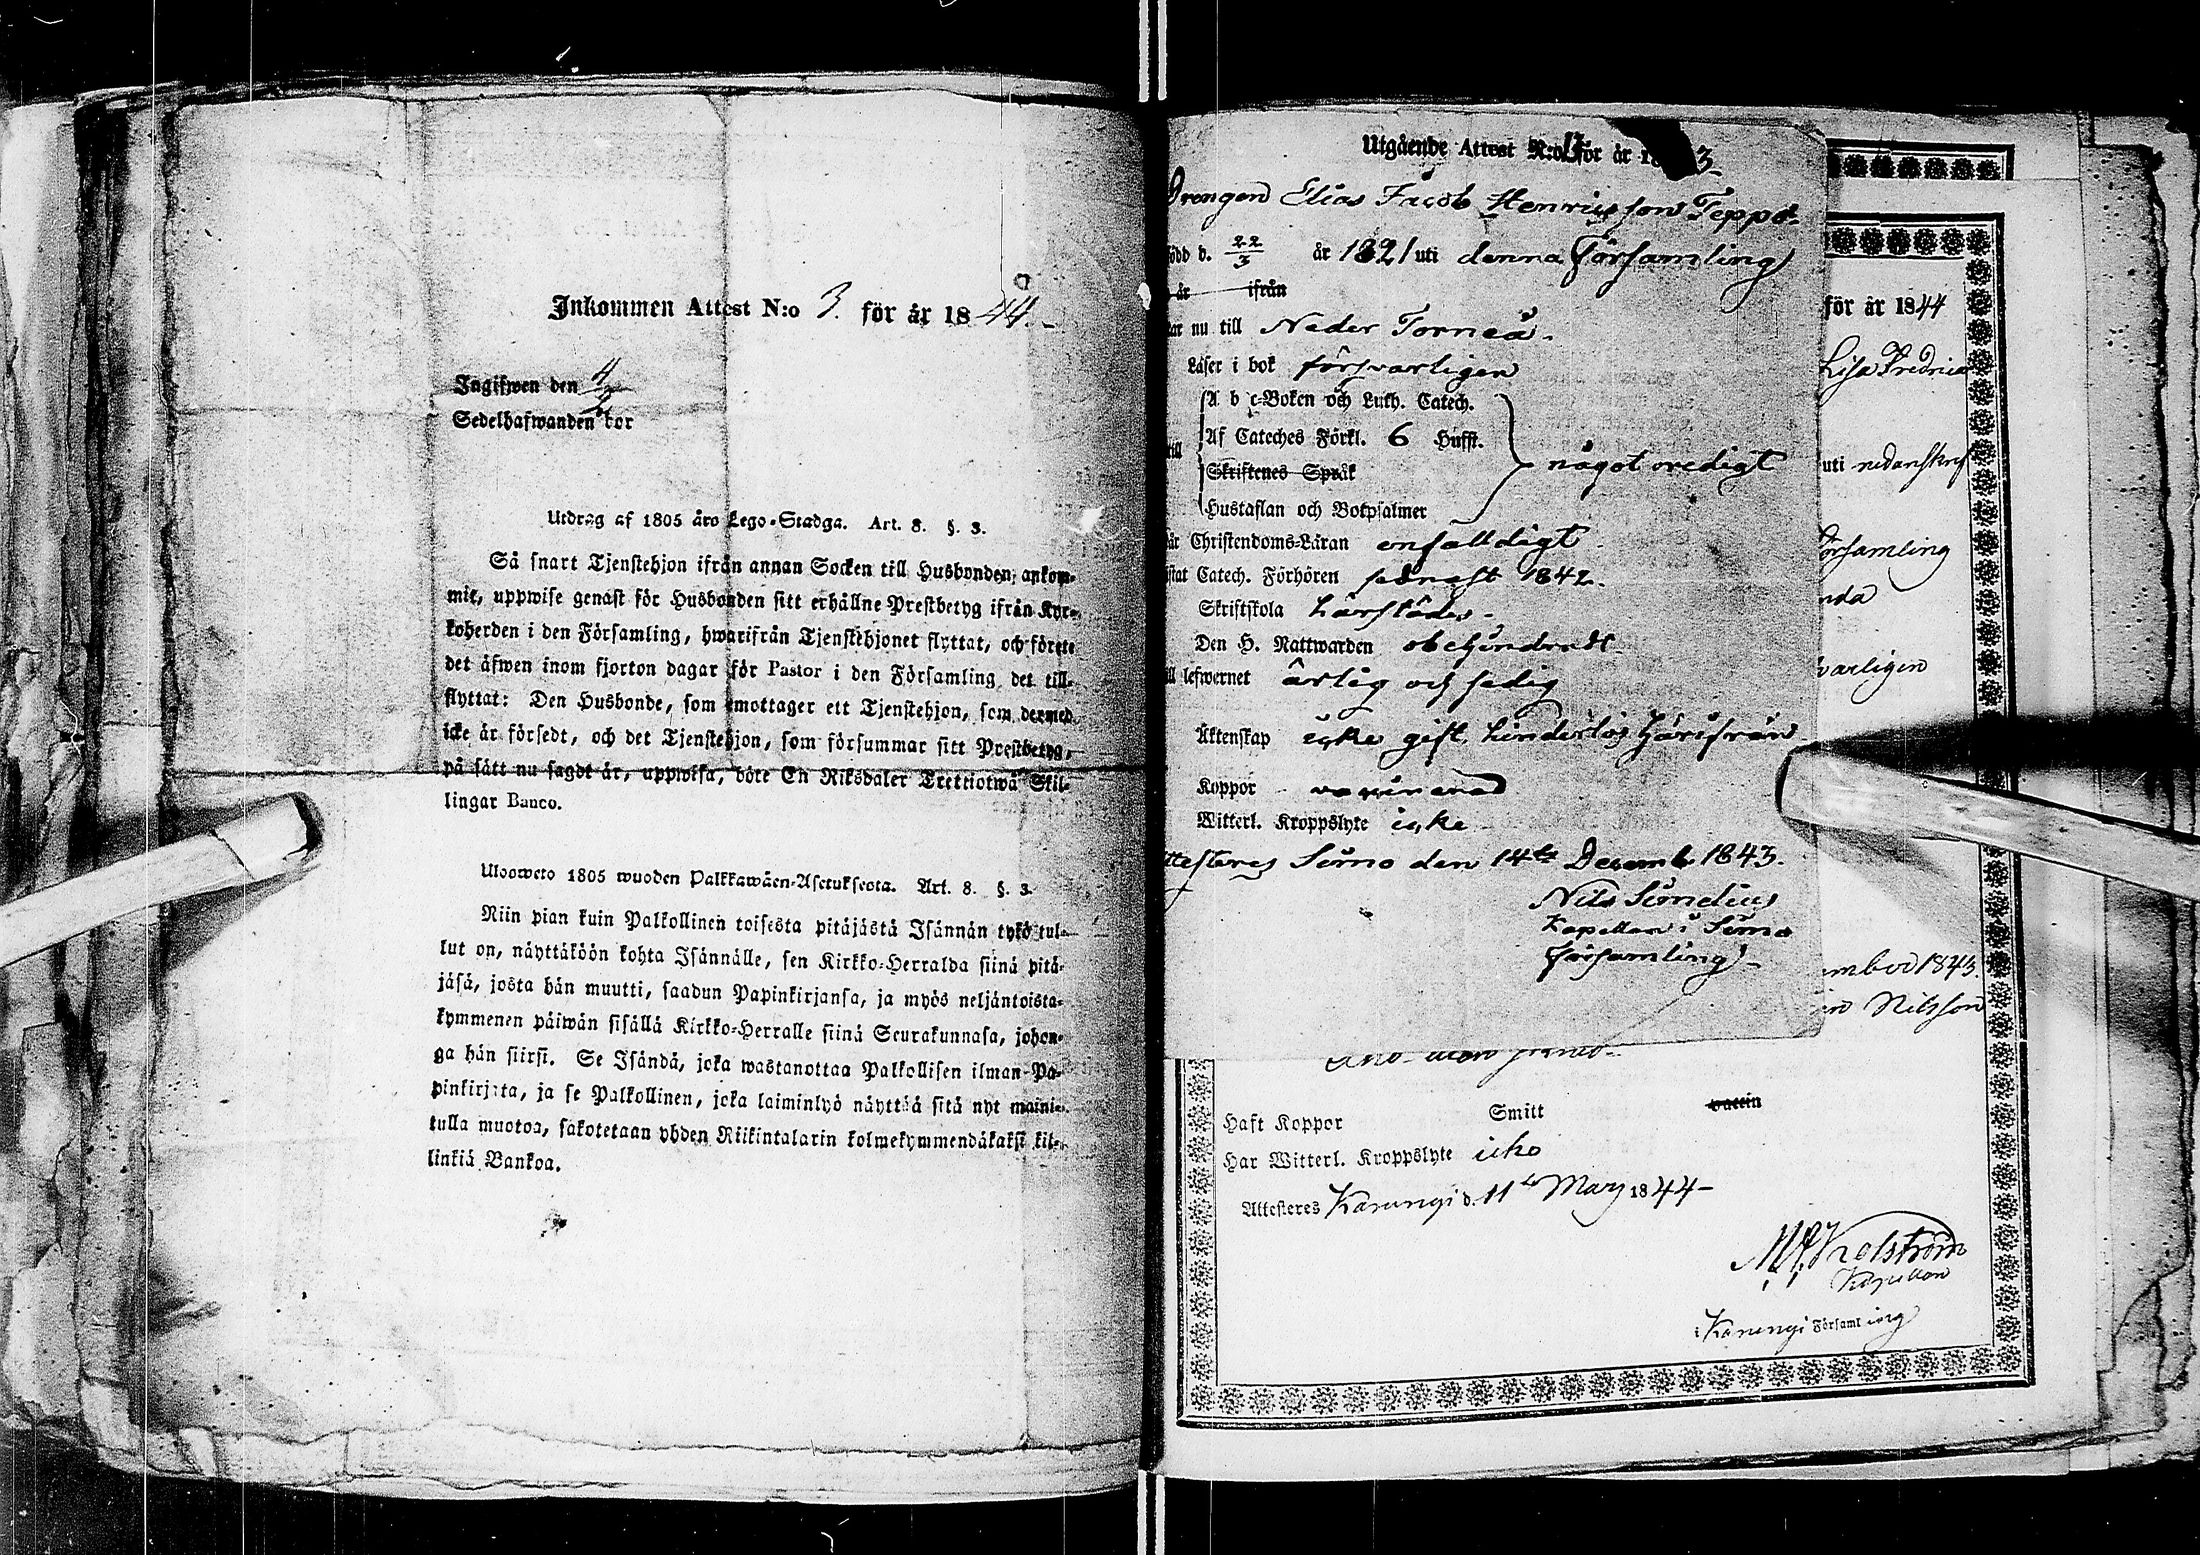 Inkommen Attest N:o 3. för år 1844.
Ingifwen den 4/2
Sedelhafwanden bor
Utdrag af 1805 åro Lego-Stadga. Art. 8. §. 3.
Så snart Tjenstehjon ifrån annan Socken till Husbonden ankom-
mit, uppwise genast för Husbonden sitt erhållne Prestbetyg ifrån Kyr-
koherden i den Församling, hwarifrån Tjenstehjonet flyttat, och förete
det äfwen inom fjorton dagar för Pastor i den Församling det till-
flyttat: Den Husbonde, som emottager ett Tjenstehjon, som dermed
icke är försedt, och det Tjenstehjon, som försummar sitt Prestbetyg,
på sätt nu sagdt är, uppwisa, böte En Riksdaler Trettiotwå Skil-
lingar Banco.
Uloosweto 1805 wuoden Palkkawäen-Asetuksesta. Art. 8. §. 3.
Niin pian kuin Palkollinen toisesta pitäjästä Isännän tykö tul-
lut on, näyttäköön kohta Isännälle, sen Kirkko-Herralda siinä pitä-
jäsä, josta hän muutti, saadun Papinkirjansa, ja myös neljäntoista-
kymmenen päiwän sisällä Kirkko-Herralle siinä Seurakunnasa, johon-
ga hän siirsi. Se Isändä, joka wastanottaa Palkollisen ilman Pa-
pinkirjata, ja se Palkollinen, joka laiminlyö näyttää sitä nyt maini-
tulla muotoa, sakotetaan yhden Riikintalarin kolmekymmendäkaksi kil-
linkiä Bankoa.
Utgående Attest N:o för år 1 3.
Drengen Elias Jacob Henricsson Teppo
född d. 22/3 år 1821 uti denna Församling
år ifrån
nu till Neder Torneå.
Läser i bok försvarligen
A b c-Boken och Luth. Catech.
Af Cateches Förkl. 6 Hufst.
Skriftenes Språk
något oredigt
Hustaflan och Botpsalmer
Christendoms-Läran enfalldigt
Catech. Förhören sednast 1842.
Skriftskola Lärstäder.
Den H. Nattwarden obehindradt
lefwernet ärlig och sedig
Äktenskap icke gift, hinderlös härifrån
Koppor vaccinerad
Witterl. Kroppslyte icke
Attesteres Simo den 14de Decemb 1843.
Nils Simelius
Kapellan i Simo
Församling
för år 1844
Lisa Fredrica
uti nedanskref
Församling
varligen
ember 1843.
Nilsson
Haft Koppor Smitt vaccin
Har Witterl. Kroppslyte icke
Attesteres Karungi d. 11 Marz 1844
Kapellan
i Karungi Församling